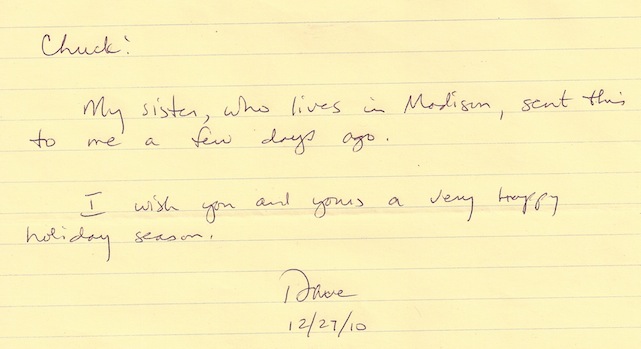 Chuck:
My sister, who lives in Madison, sent this
to me a few days ago.
I wish you and yours a very happy
holiday season.
Dave
12/27/10